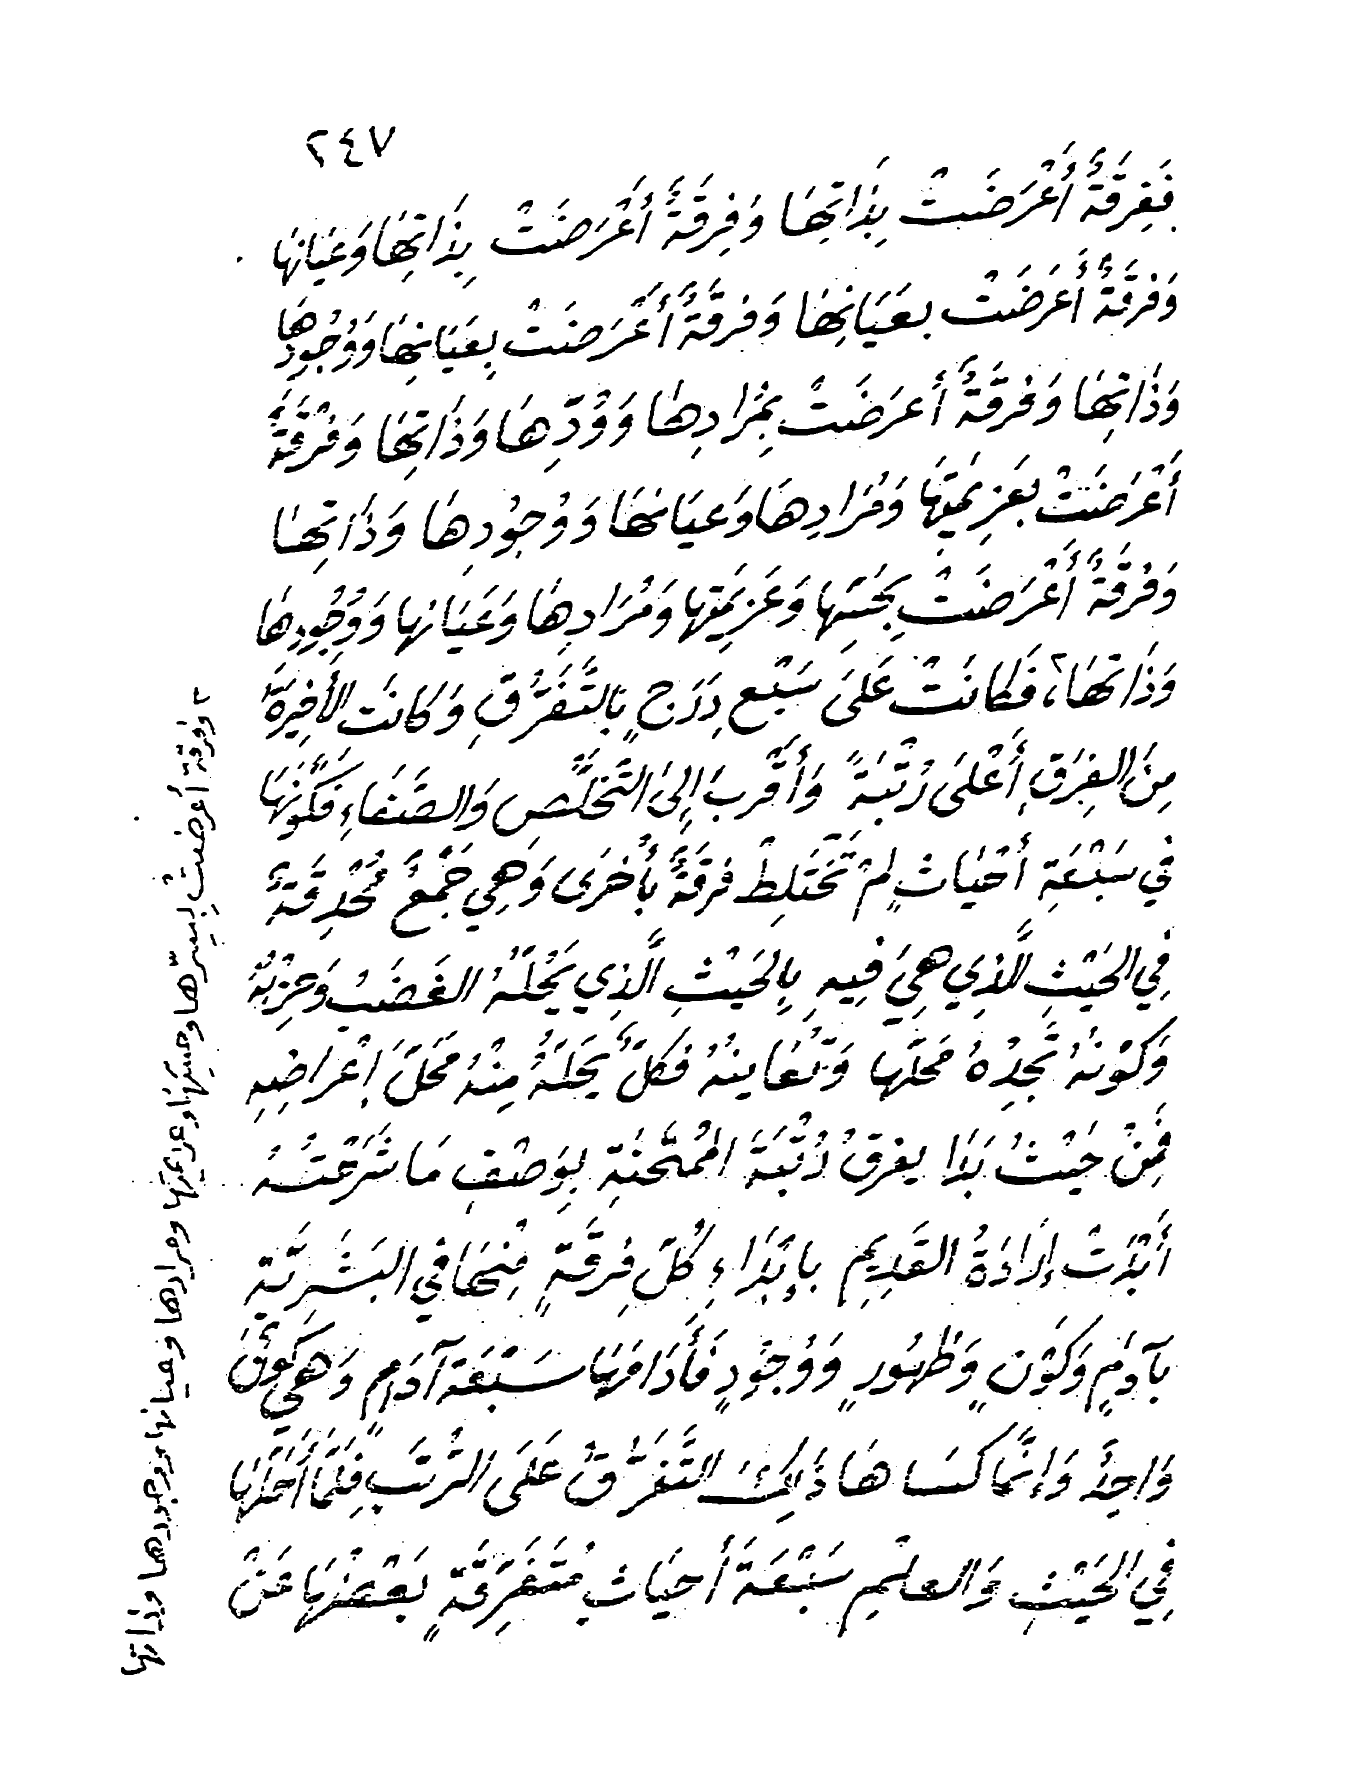 ٢٤٧
فَفِرقَةٌ أَعْرَضَتْ بِذَاتِهَا وَفِرقَةٌ أَعْرَضَتْ بِذَاتِهَا وَعَيَانِهَا
وَفِرقَةٌ أَعرَضَتْ بِعَيَانِهَا وَفِرقَةٌ أَعْرَضَتْ بِعَيَانِهَا وَوُجُودِهَا
وَذَاتِهَا وَفِرقَةٌ أَعرَضَتْ بِمُرَادِهَا وَوُدِّهَا وَذَاتِهَا وَفِرْقَةٌ
أَعْرَضَتْ بِعَزِيمَتِهَا وَمُرَادِهَا وَعيَانِهَا وَوُجُودِهَا وَذَاتِهَا
وَفِرقَةٌ أَعْرَضَتْ بِحِسِّهَا وَعَزِيمَتِهَا وَمُرَادِهَا وَعَيَانِهَا وَوُجُودِهَا
وَذَاتِهَا،٢ فَكَانَتْ عَلَى سَبْعِ دِرَجٍ بِالتَّفَرُّقِ وَكَانَتِ الأَخِيرَةُ
مِنَ الفِرَقِ أَعْلَى رُتْبَةً وَأَقْرَبَ إِلَى التَّخَلُّصِ وَالصَّفَاءِ فَكَوَّنَهَا
فِي سَبْعَةِ أَحْيَاثٍ لَمْ تَخْتَلِطْ فِرقَةٌ بِأُخرَى وَهِيَ جَمْعٌ مُحْدِقَةٌ
فِي الحَيْثِ الَّذِي هِيَ فِيهِ بِالحَيْثِ الَّذِي يَحُلُّهُ الغَضَبُ وَحِزْبُهُ
وَكَوْنُهُ تَجِدُهُ مَحلَّهَا وَتُعَاينُهُ فَكُلٌّ يَحُلُّهُ مِنْهُ مَحَلَّ إِعْرَاضِهِ
فَمِنْ حَيْثُ بَدَا بِفِرَقِ رُتْبَةَ المُمْتَحَنَةِ بِوَصْفِ مَا شَرَحْتُهُ
أَبْدَتْ إِرَادَةُ القَدِيمِ بِإِبْدَاءِ كُلِّ فِرقَةٍ مِنْهَا فِي البَشَرِيَّةِ
بِآدَمٍ وَكَوْنٍ وَظُهُورٍ وَوُجُودٍ فَأَدَامَهَا سَبْعَة آدَمٍ وَهِيَ كَوْنٌ
وَاحِدٌ وَإِنَّمَا كَسَاهَا ذَلِكَ التَّفَرُّقُ عَلَى الرُّتَبِ فَلَمَّا أَحَلَّهَا
فِي الحَيْثِ وَالعِلْمِ سَبْعَةَ أَحيَاثٍ مُتَفَرِّقَةٍ بَعْضُهَا عَنْ
٢ وفرقة أعرضتْ بسرّها وحسّها وعزيمتها ومرادها وعيانها ووجودها وذاتها